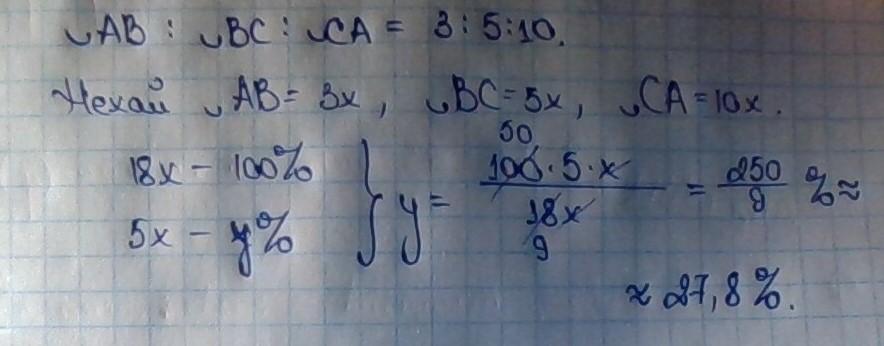 ◡AB : ◡BC : ◡CA = 3 : 5 : 10.
Нехай ◡AB = 3x, ◡BC = 5x, ◡CA = 10x.
18x – 100%
5x – y%
} y = 50 100 · 5 · x / 18x 9 = 250 / 9 % ≈
≈ 27,8%.